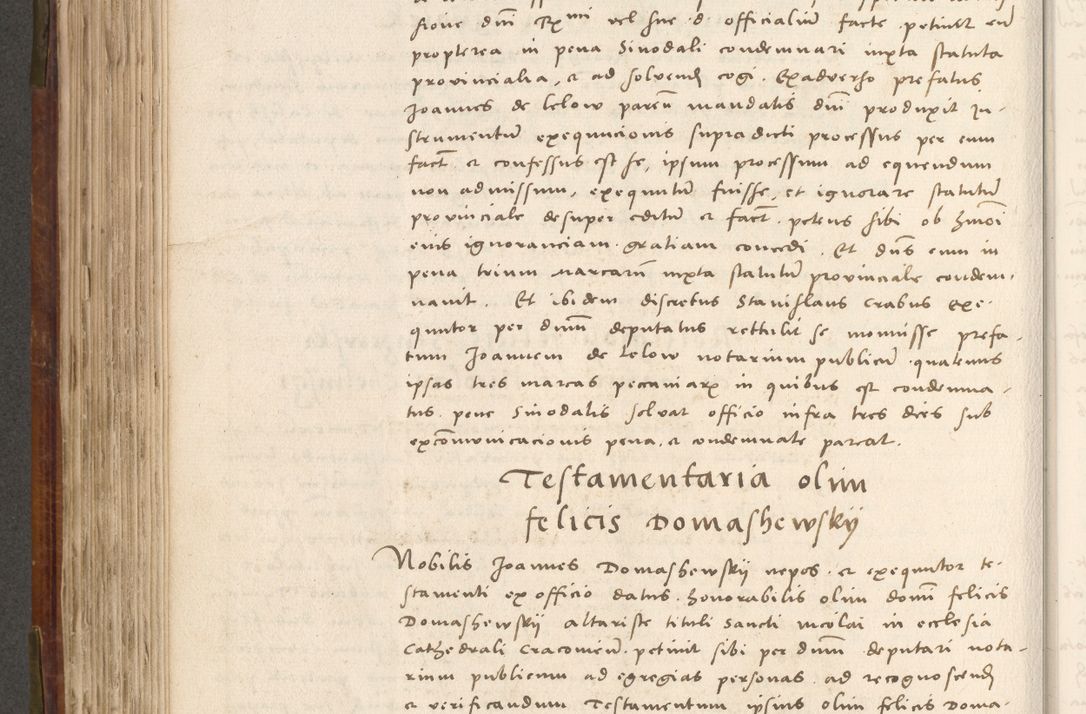 sione dnī Rxmi vel sue d. officialiū facte petiuit eū
propterea in pena Sinodali condemnari iuxta statuta
provincialia, et ad solvend cogi. Exadverso prefatus
Joannes de lelow pareñ mandatis dnī produxit In-
strumentū exequucionis supradicti processus per eum
fact et confessus est se, ipsum processum ad equendum
non admissum, exequutū fuisse, et ignorare statutū
provinciale desuper editū et fact petens sibi ob hmōi
eius ignoranciam gratiam concedi. Et dns eum in
pena trium marcarū iuxta statutū provinciale condem-
navit. Et ibidem discretus Stanislaus Crabus exe-
quutor per dnum deputatus rettulit se monuisse prefa-
tum Joannem de Lelow notarium publicū quatenus
ipsas tres marcas pecuniarx in quibus est condemna-
tus pene Sinodalis solvat officio infra tres dies sub
excōmunicacionis pena, et condemnate pareat.
Testamentaria olim
felicis Domashewsky
Nobilis Joannes Domashewsky nepos et exequutor te-
stamenti ex officio datus honorabilis olim domī felicis
Domashewsky altariste tituli sancti nicolai in ecclesia
Cathedrali Cracovieñ petivit sibi per dnum deputari nota-
rium publicum ad egregias personas ad recognoscend
et verificandum Testamentum ipsius olim felicis Doma-